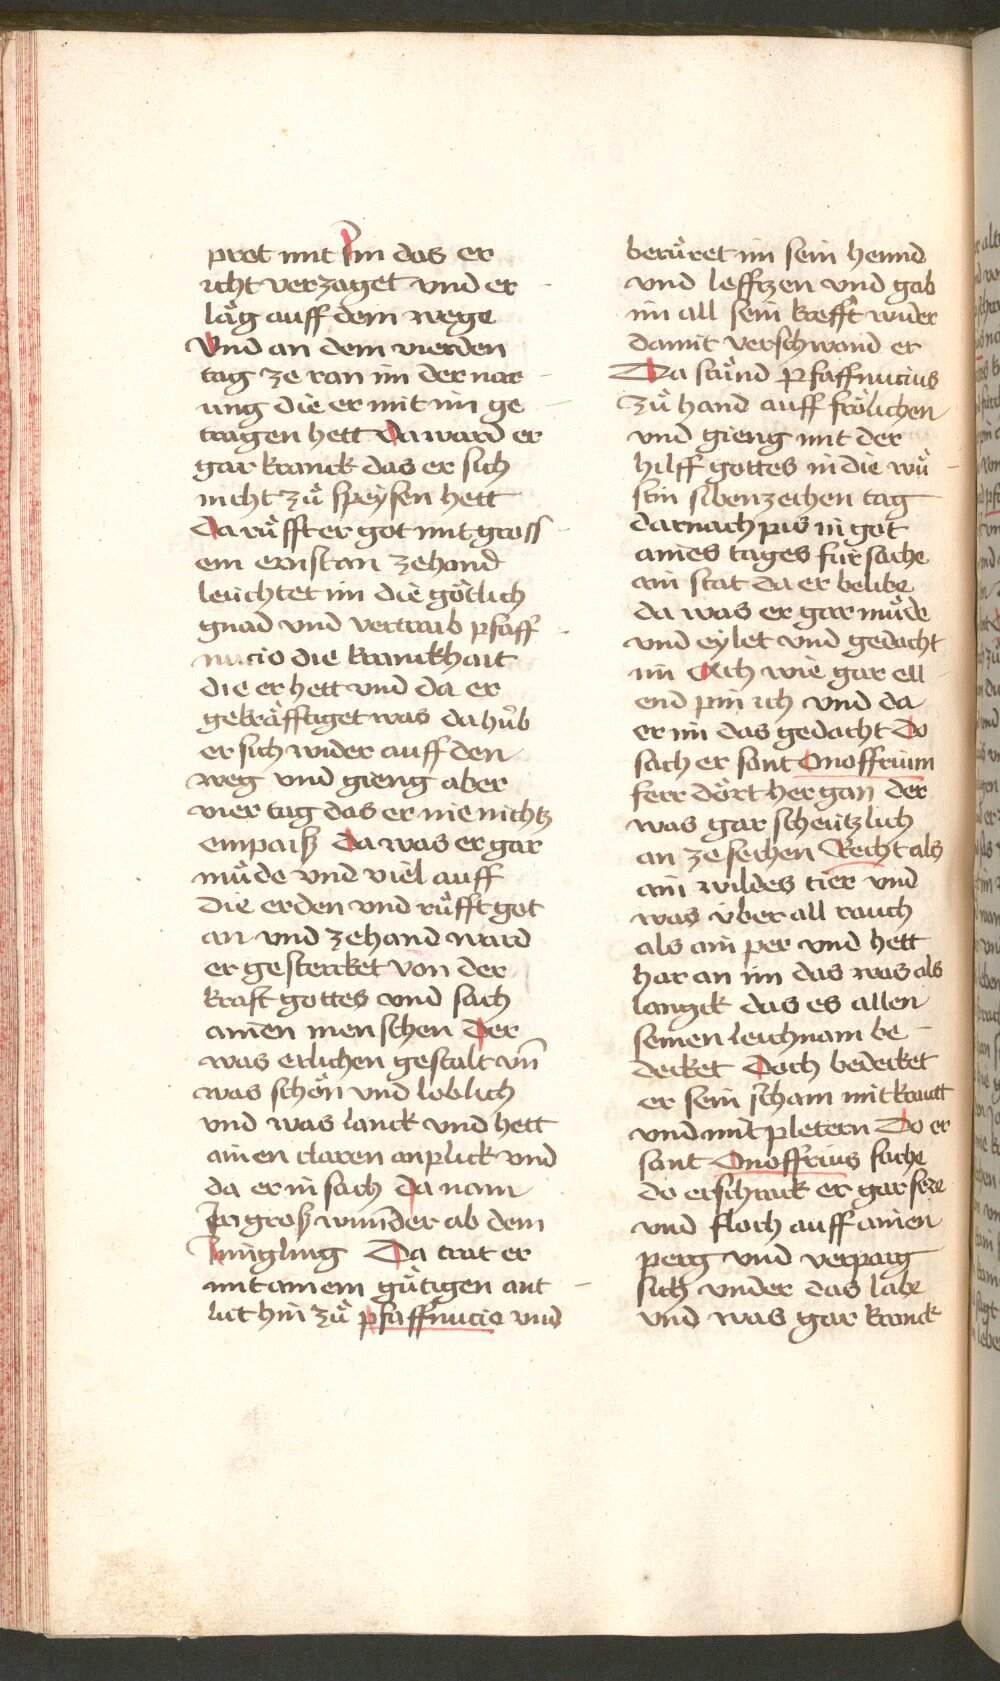 prot mit Im das er
icht verzaget vnd er
läg auff dem wege
Vnd an dem vierden
tag ze ran im der nar
ung die er mit im ge
tragen hett Da ward er
gar kranck das er sich
nicht zuͤ speÿsen hett
Da ruͤfft er got mit gross
em ernstan zehand
leuchtet im die goͤtlich
gnad vnd vertraib pfaff
nucio die kranckhait
die er hett vnd da er
gekräfftiget was da huͦb
er sich wider auff den
weg vnd gieng aber
vier tag das er nie nichtz
enpaisz Da was er gar
muͤde vnd viel auff
die erden vnd ruͤfft got
an vnd zehand ward
er gesterket von der
kraft gottes vnd sach
ainen menschen Der
was erlichen gestalt vnd̄
was schoͤn vnd loblich
vnd was lanck vnd hett
ainen claren anplick vnd
da er in sach da nam
In grosz wunder ab dem
Jungling Da trat er
mit ainem guͤtigen ant
lut hin zuͤ pfaffnucio vnd
beruͤret im sein hennd
vnd leffczen vnd gab
im all sein krefft wider
damit verschwand er
Da stuͤnd pfaffnucius
zuͤ hand auff froͤlichen
vnd gieng mit der
hilff gottes in die wuͤ
stin sibenzechen tag
darnach pis in got
aines tages fürsache
ain stat da er belibe
da was er gar muͤde
vnd eylet vnd gedacht
im Ach wie gar ell
end pin ich vnd da
er im das gedacht Do
sach er sant Onoffrium
ferr doͤrt her gan der
was gar scheutzlich
an ze sechen Recht als
ain wildes tier vnd
was vͤber all rauch
als ain per vnd hett
har an im das was als
langk das es allen
seinen leichnam be
decket Doch bedecket
er sein scham mit kraut
vnd mit pletern Do er
sant Onoffrius sache
do erschrack er gar sere
vnd floch auff ainen
perg vnd verparg
sich vnder das labe
vnd was gar kranck